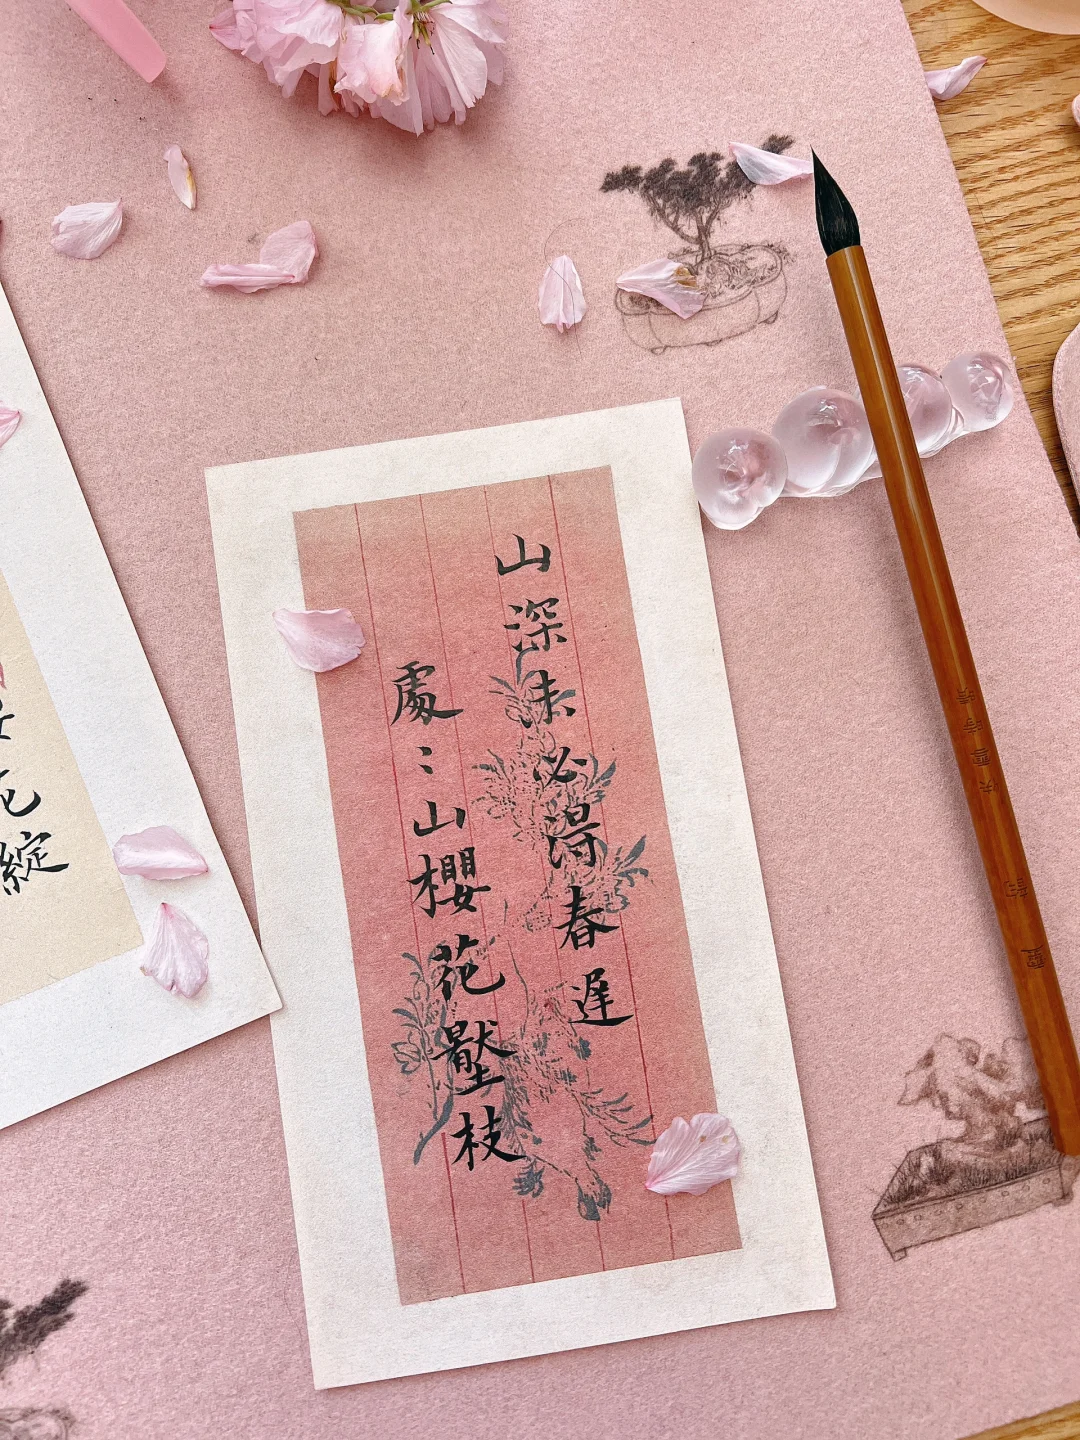 山深未必得春遲
處〻山櫻花壓枝
花綻